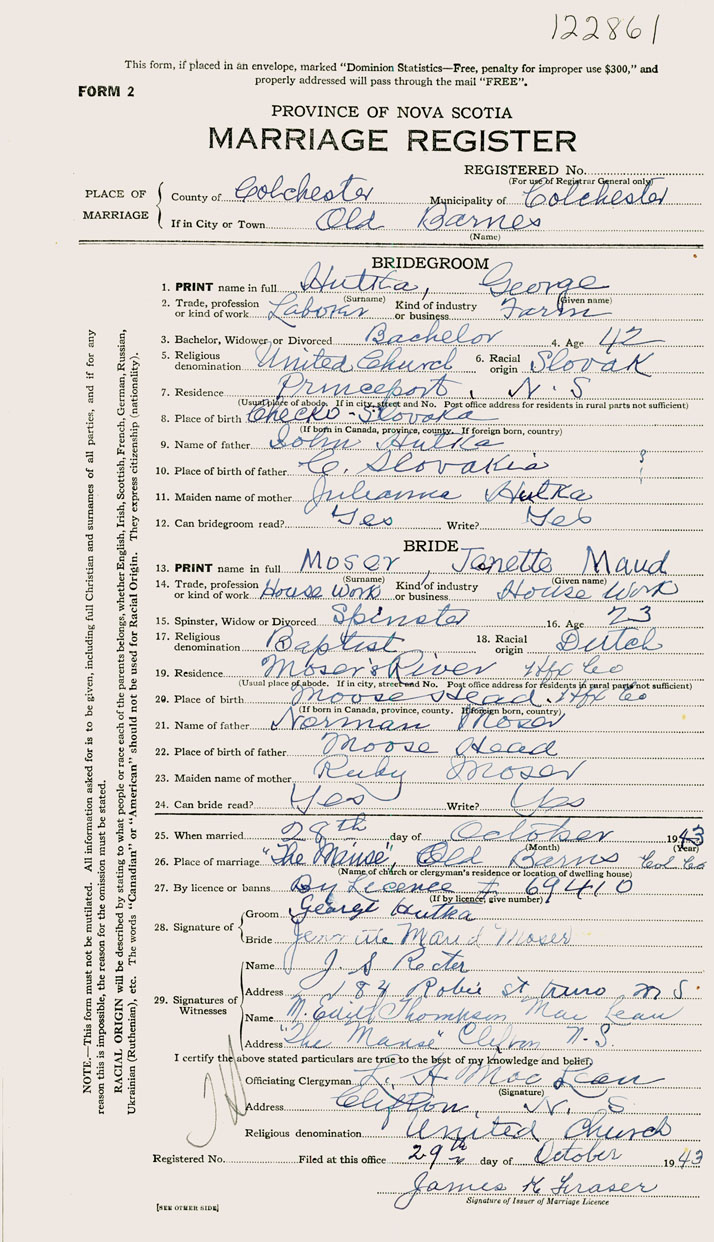 122861
This form, if placed in an envelope, marked "Dominion Statistics—Free, penalty for improper use $300," and
properly addressed will pass through the mail "FREE".
FORM 2
PROVINCE OF NOVA SCOTIA
MARRIAGE REGISTER
REGISTERED No.
(For use of Registrar General only)
PLACE OF MARRIAGE
County of Colchester Municipality of Colchester
If in City or Town Old Barnes
(Name)
BRIDEGROOM
1. PRINT name in full Hutka, George
(Surname) (Given name)
2. Trade, profession or kind of work Laborer Kind of industry or business Farm
3. Bachelor, Widower or Divorced Bachelor 4. Age 42
5. Religious denomination United Church 6. Racial origin Slovak
7. Residence Princeport, N. S
(Usual place of abode. If in city, street and No. Post office address for residents in rural parts not sufficient)
8. Place of birth Checko-Slovaka
(If born in Canada, province, county. If foreign born, country)
9. Name of father John Hutka
10. Place of birth of father C. Slovakia
11. Maiden name of mother Julianna Hutka
12. Can bridegroom read? Yes Write? Yes
BRIDE
13. PRINT name in full Moser, Janette Maud
(Surname) (Given name)
14. Trade, profession or kind of work House Work Kind of industry or business House Work
15. Spinster, Widow or Divorced Spinster 16. Age 23
17. Religious denomination Baptist 18. Racial origin Dutch
19. Residence Moser's River Hfx Co
(Usual place of abode. If in city, street and No. Post office address for residents in rural parts not sufficient)
20. Place of birth Moose Head Hfx Co
(If born in Canada, province, county. If foreign born, country)
21. Name of father Norman Moser
22. Place of birth of father Moose Head
23. Maiden name of mother Ruby Moser
24. Can bride read? Yes Write? Yes
25. When married 28th day of October 1943
(Month) (Year)
26. Place of marriage "The Manse", Old Barns Col Co
(Name of church or clergyman's residence or location of dwelling house)
27. By licence or banns By Licence # 69410
(If by licence, give number)
28. Signature of
Groom George Hutka
Bride Jennette Maud Moser
29. Signatures of Witnesses
Name J. S Recter
Address 184 Robie st Truro N S
Name M. Thompson Mac Lean
Address "The Manse" Clifton N. S.
I certify the above stated particulars are true to the best of my knowledge and belief,
Officiating Clergyman L. A Mac Lean
(Signature)
Address Clifton, N. S
Religious denomination United Church
Registered No. Filed at this office 29th day of October 1943
James K Fraser
Signature of Issuer of Marriage Licence
[SEE OTHER SIDE]
NOTE.—This form must not be mutilated. All information asked for is to be given, including full Christian and surnames of all parties, and if for any
reason this is impossible, the reason for the omission must be stated.
RACIAL ORIGIN will be described by stating to what people or race each of the parents belongs, whether English, Irish, Scottish, French, German, Russian,
Ukrainian (Ruthenian), etc. The words "Canadian" or "American" should not be used for Racial Origin. They express citizenship (nationality).